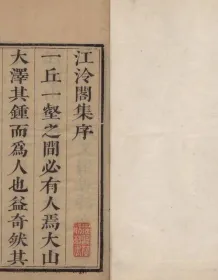 江泠閣集序
一丘一壑之間必有人焉大山
大澤其鍾而為人也益奇然其